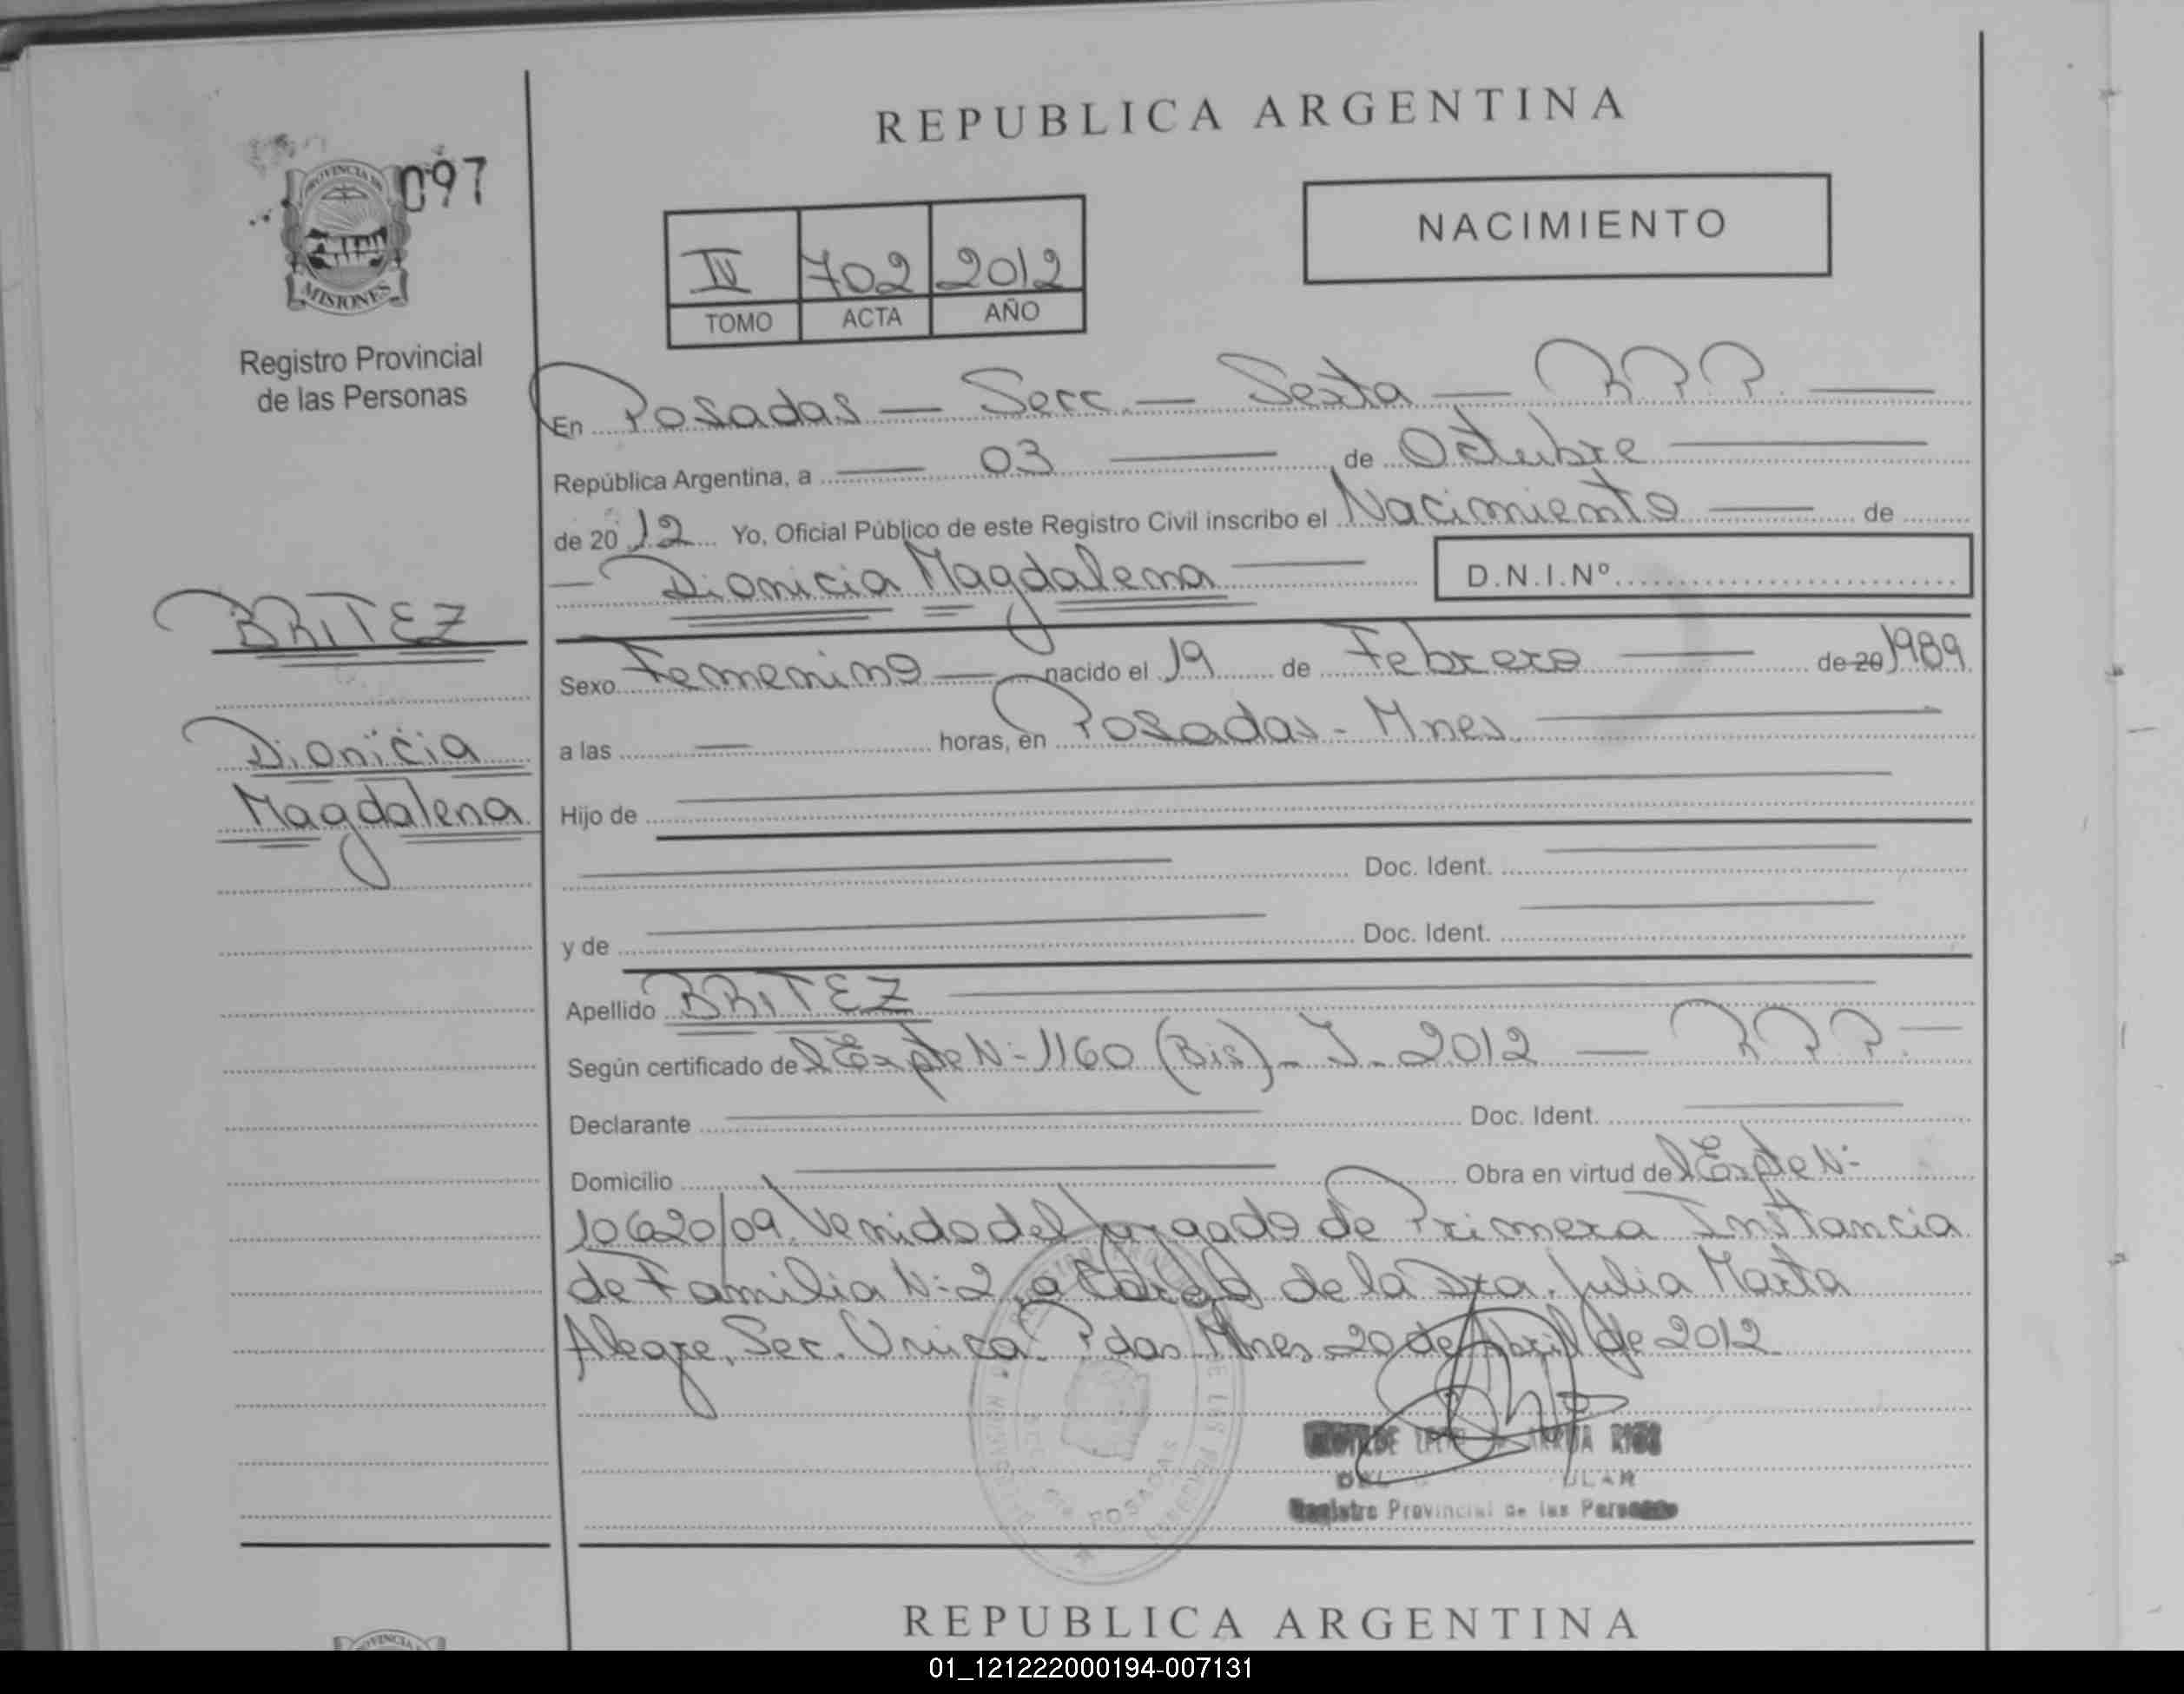 REPUBLICA ARGENTINA
097
PROVINCIA DE
MISIONES
NACIMIENTO
IV 702 2012
TOMO ACTA AÑO
Registro Provincial
de las Personas
En Posadas — Secc. — Sexta — R.P.P. —
República Argentina, a — 03 — de Octubre —
de 2012 Yo, Oficial Público de este Registro Civil inscribo el Nacimiento — de
— Dionicia Magdalena — D.N.I.Nº
BRITEZ
Dionicia
Magdalena
Sexo Femenino — nacido el 19 de Febrero — de 20 1989
a las — horas, en Posadas - Mnes. —
Hijo de —
— Doc. Ident. —
y de — Doc. Ident. —
Apellido BRITEZ —
Según certificado del Expte N: 1160 (Bis) - J - 2012 — R.P.P. —
Declarante — Doc. Ident. —
Domicilio — Obra en virtud del Expte N:
10620/09. Venido del Juzgado de Primera Instancia
de Familia N: 2, a Cargo de la Dra. Julia Marta
Alegre, Sec. Unica. Pdas Mnes 20 de Abril de 2012
RIOS
Registro Provincial de las Personas
POSADAS
REPUBLICA ARGENTINA
01_121222000194-007131